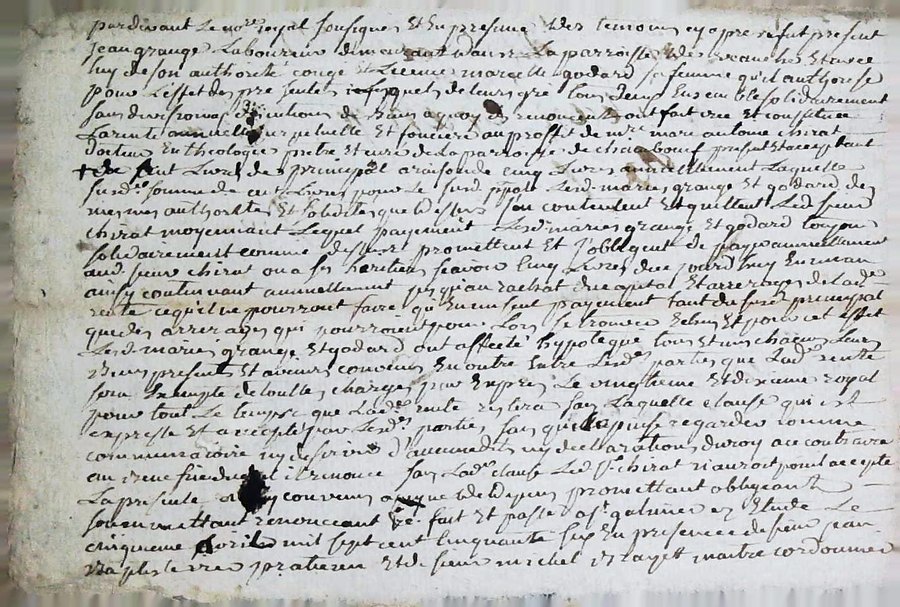 pardevant le no.re royal soussigné Et En presence des temoins cy apres fut present
jean grange Laboureur demeurant dans La parroisse de veauche Et avec
luy de son authorité congé Et Licence marcelle godard sa femme qu'il authorise
pour L'effet des presentes lesquels de leurs gré tous deux Ensemble solidairement
sans division ny de biens ont fait cree Et constitué
La rente annuelle perpetuelle Et fonciere au proffit de m.re marc antoine chirat
docteur En theologie pretre et curé de La parroisse de chambœuf present Et acceptant
cent Livres de principal a raison de cinq Livres annuellement Laquelle
susd. somme de cent Livres pour le susd. ppal Lesd. maries grange Et godard des
mesmes authorités Et solidités que dessus s'en contentent Et quittent Led. sieur
chirat moyennant Lequel payement Lesd. maries grange Et godard toujours
solidairement comme dessus promettent Et s'obligent de payer annuellement
aud. sieur chirat ou a ses heritiers scavoir cinq Livres dhuy En un an
ainsy continuant annuellement jusqu'au rachat du capital Et arrerages de Lad.
rente ce qu'il ne pourront faire qu'En un seul payement tant du sort principal
que des arrerages qui pourroient pour Lors se trouver Echus Et pour cet effet
Lesd. maries grange Et godard ont affecté hypoteque tous Et uns chacuns Leurs
Biens presents Et avenirs convenu En outre Entre Lesd. parties que Lad. rente
sera Exempte de toutte charges Le vingtieme Et dixieme royal
pour tout Le temps que Lad. rente restera sans Laquelle clause qui est
expresse Et acceptée par Lesd. parties sans qu'elle puisse regarder comme
comminatoire ny de d'aucun edits ny declarations du roy au contraire
il renonce sans Lad. clause Led. S. chirat n'auroit point accepté
La presente convenu promettant obligeant
soumettant renonceant &c. fait Et passé a S.t galmier En Etude Le
cinquieme avril mil sept cent cinquante six En presence de sieur jean
Baptiste praticien Et de sieur michel maitre cordonnier